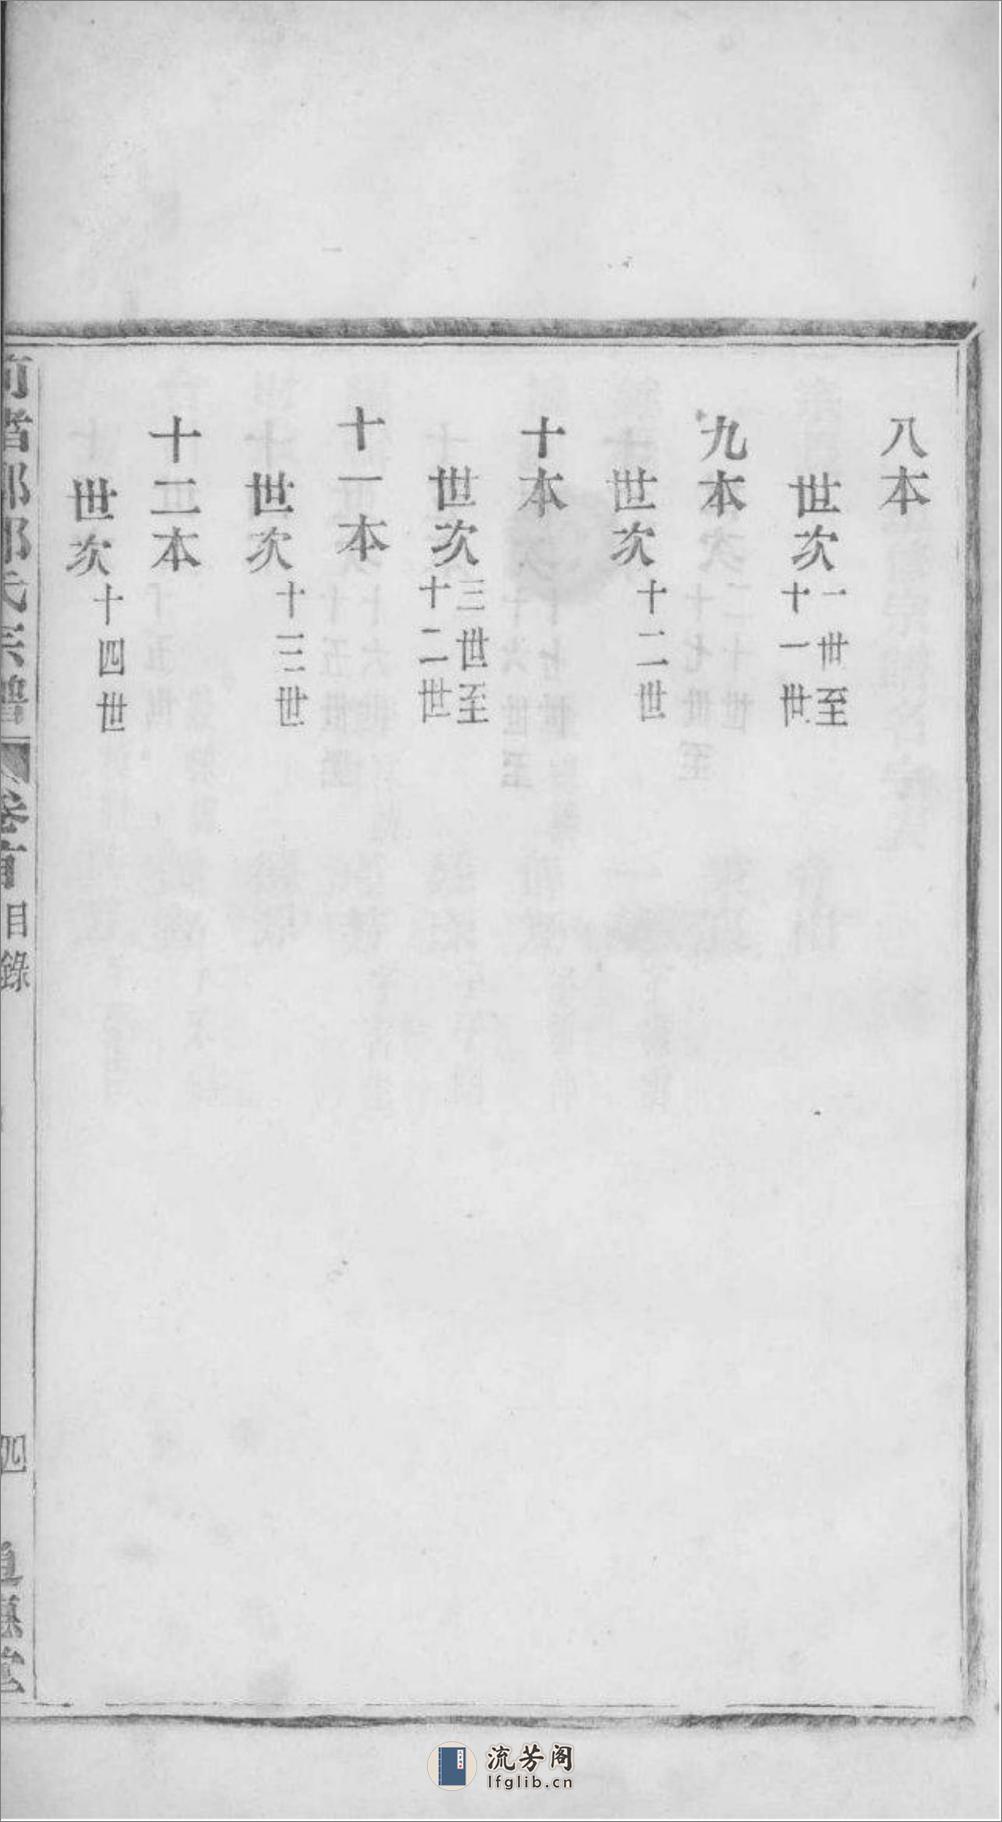 八本
世次 一世至十一世
九本
世次 十二世
十本
世次 三世至十二世
十一本
世次 十三世
十二本
世次 十四世
氏宗譜 卷首 目錄 四
流芳阁
lfglib.cn